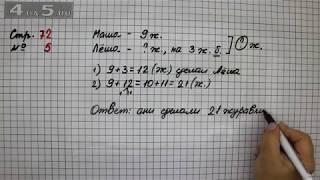 4-5.ru
Стр. 72
№ 5
Маша - 9 ж.
Лёша - ? ж, на 3 ж. б. ] ? ж.
1) 9+3=12 (ж) сделал Лёша
2) 9+12=10+11=21 (ж.)
Ответ: они сделали 21 журавли